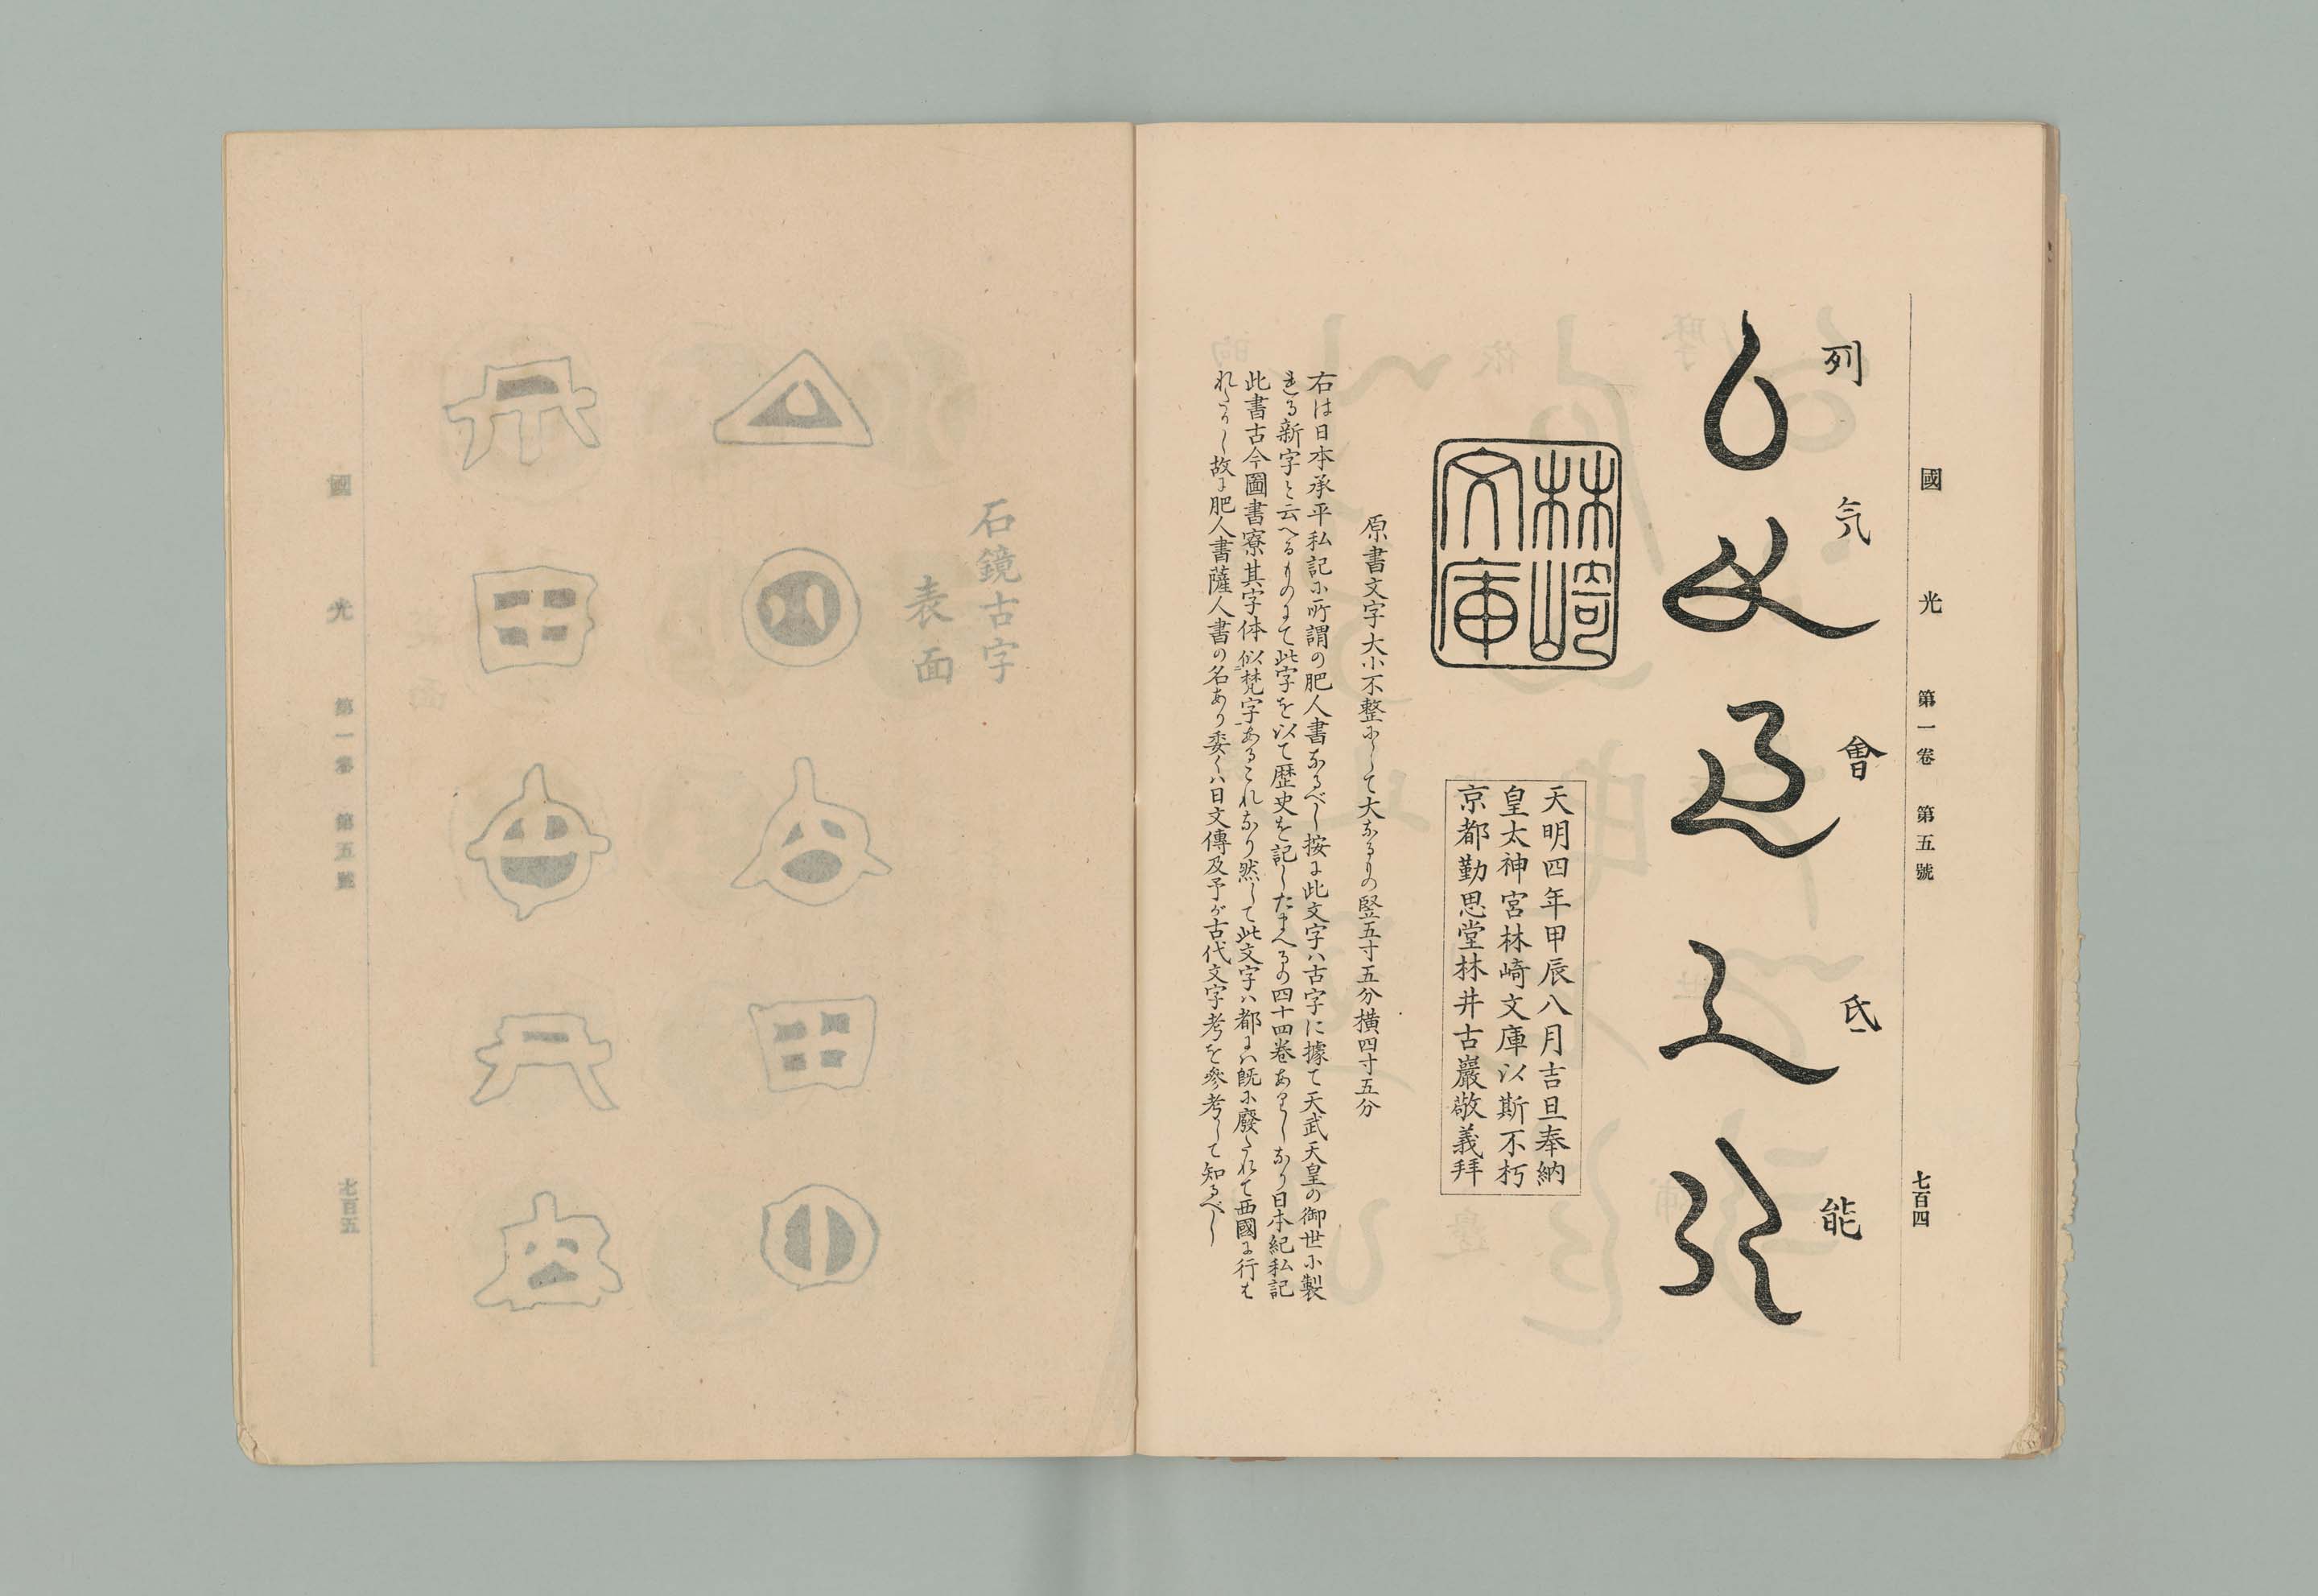 國光 第一卷 第五號 七百四
列
気
會
氐
能
林崎
文庫
天明四年甲辰八月吉旦奉納
皇太神宮林崎文庫以斯不朽
京都勤思堂林井古巖敬義拜
原書文字大小不整にして大なるもの竪五寸五分橫四寸五分
右は日本承平私記に所謂の肥人書なるべし按に此文字ハ古字に據て天武天皇の御世に製
せる新字と云へるものにて此字を以て歴史を記したまへるの四十四卷ありしなり日本紀私記
此書古今圖書寮其字体似梵字あるこれなり然して此文字ハ都にハ既に廢たれて西國に行は
れたりし故に肥人書薩人書の名あり委くハ日文傳及予が古代文字考を參考して知るべし
石鏡古字
表面
國光 第一卷 第五號 七百五